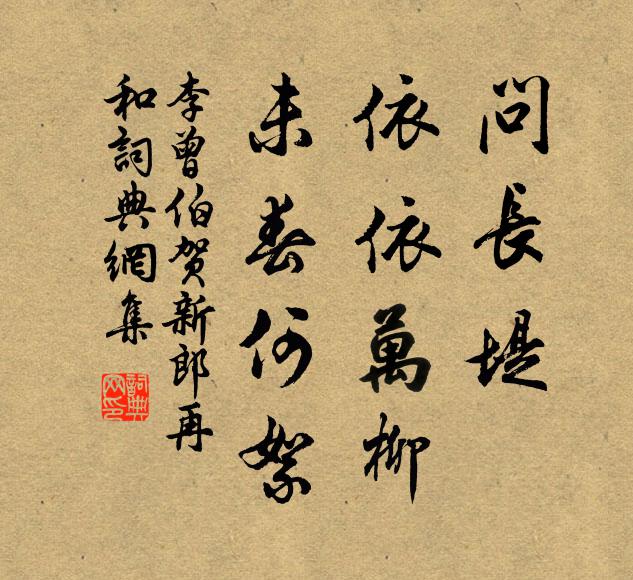 問長堤
依依萬柳
未春何絮
李曾伯賀新郎再
和詞典網集
詞典
网印